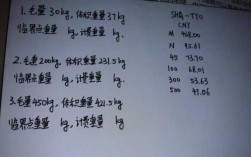 1. 毛重 30kg, 体积重量 37kg
临界点重量 kg, 计费重量 kg.
2. 毛重 200kg, 体积重量 231.5kg
临界点重量 kg, 计费重量 kg.
3. 毛重 450kg, 体积重量 421.5kg
临界点重量 kg, 计费重量 kg
SHA-TYO
CNY
M 468.00
N 95.61
45 73.70
100 68.01
300 53.63
500 49.06